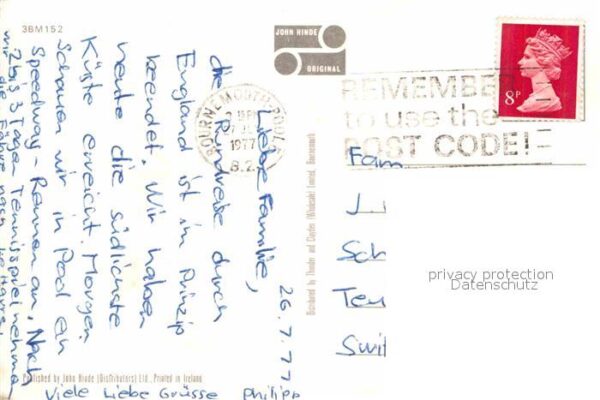 3BM152
JOHN HINDE
ORIGINAL
BOURNEMOUTH-POOLE
1977
REMEMBER
to use the
POST CODE!
8P
26.7.77
Liebe Familie,
die Rundreise durch
England ist in Prinzip
beendet. Wir haben
heute die südlichste
Küste erreicht. Morgen
Schauen wir in Pool ein
Speedway-Rennen an. Nach
2bis 3 Tagen Tennisspiel nehmen
wir die Fähre nach
Viele Liebe Grüsse Philipp
Fam
Sch
Swi
privacy protection
Datenschutz
Distributed by Thunder and Clayton (Wholesale) Limited, Bournemouth
Published by John Hinde (Distributors) Ltd., Printed in Ireland